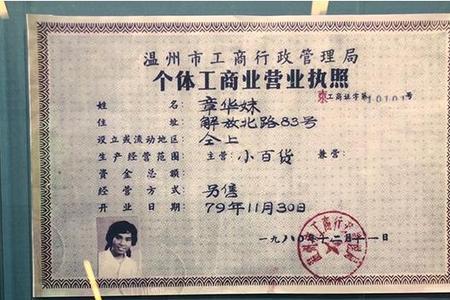 温州市工商行政管理局
个体工商业营业执照
工商证字第10101号
姓 名 章华妹
住 址 解放北路83号
设立或流动地区 仝上
生产经营范围 主营:小百货 兼营:
资金总额
经营方式 另售
开业日期 79年11月30日
一九八〇年十二月十一日
温州市工商行政管理局